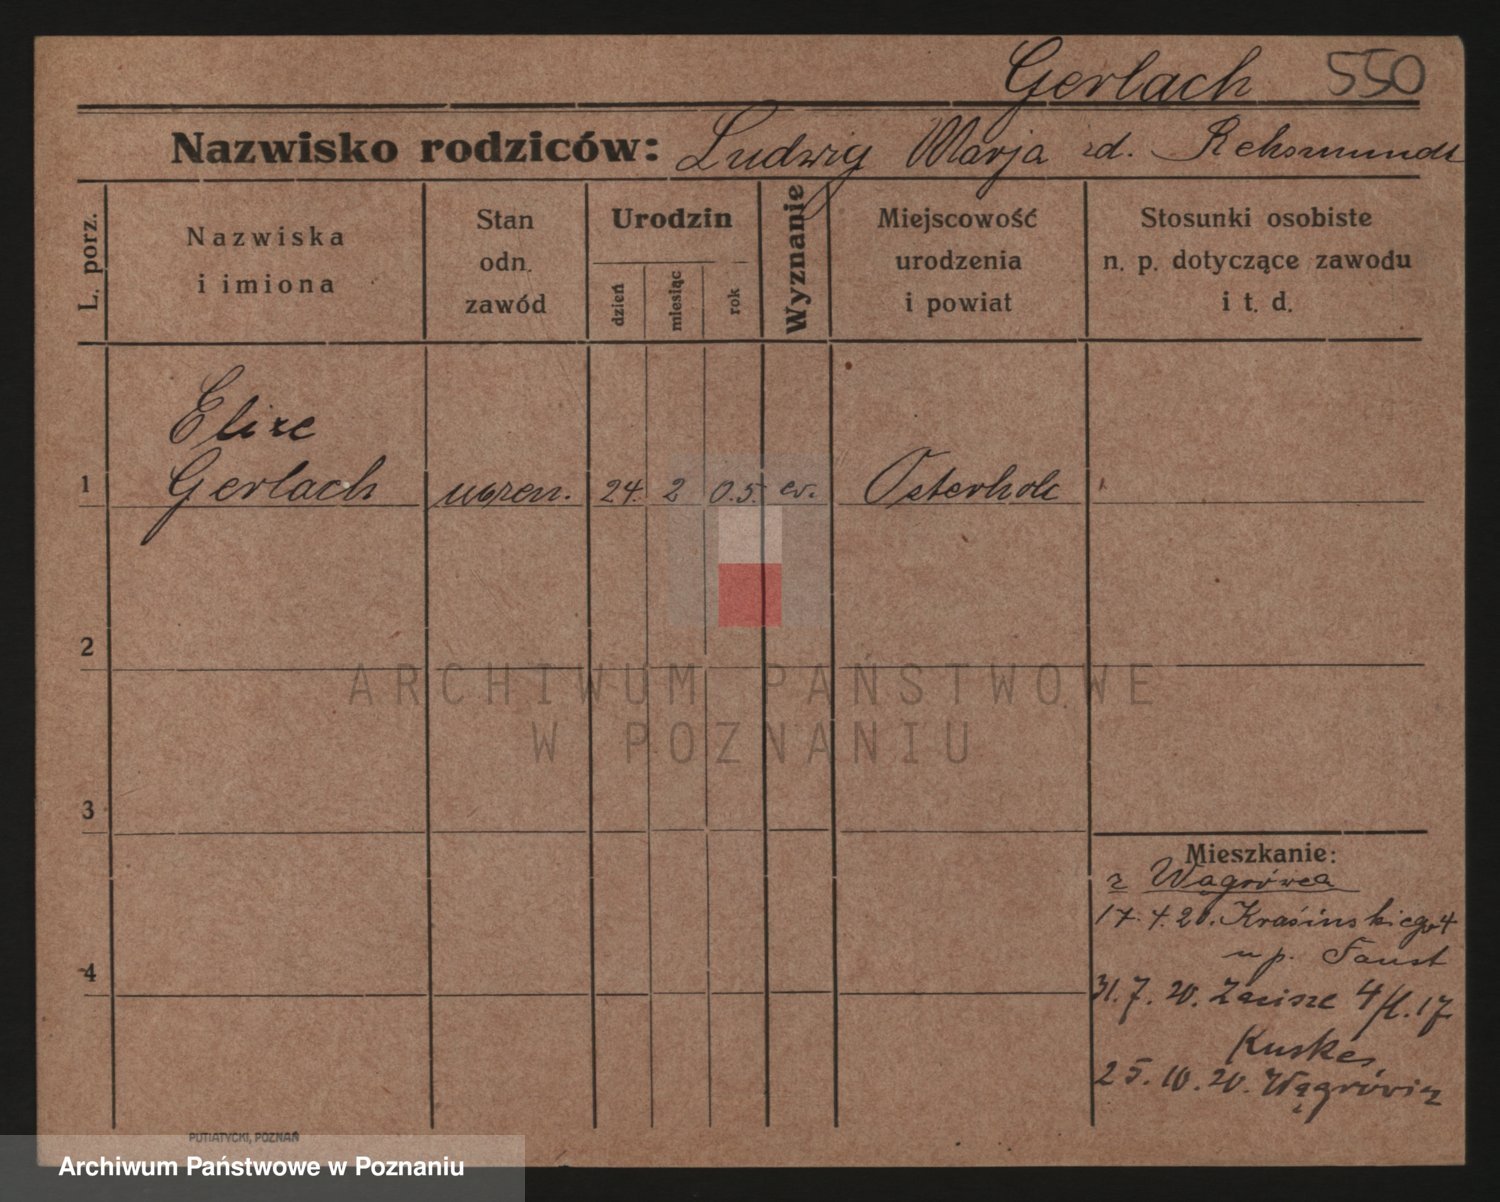 Gerlach 550
Nazwisko rodziców: Ludwig Marja zd.
L. porz.
Nazwiska
i imiona
Stan
odn.
zawód
Urodzin
dzień
miesiąc
rok
Wyznanie
Miejscowość
urodzenia
i powiat
Stosunki osobiste
n. p. dotyczące zawodu
i t. d.
Elize
1 Gerlach uczen. 24. 2 0.5. ev. Osterholz
2
3
4
Mieszkanie:
z Wągrówca
17.4.20. Krasińskiego 4
u p. Faust
31.7.20. Zacisze 4/ 17
Kuskes
25.10.20. Wągrówiz
PUTIATYCKI, POZNAŃ
ARCHIWUM PAŃSTWOWE
W POZNANIU
Archiwum Państwowe w Poznaniu